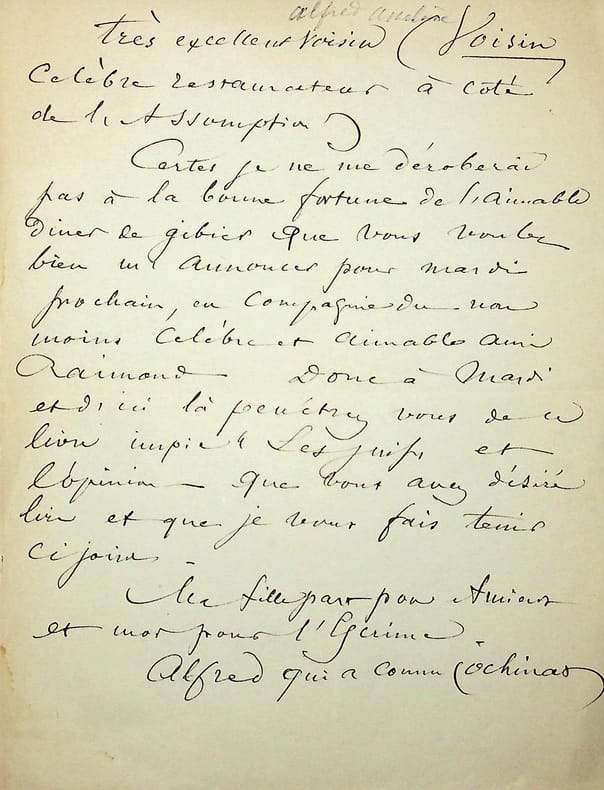 alfred asseline
très excellent Voisin (Voisin
Celèbre restaurateur à côté
de l'Assomption)
Certes je ne me déroberai
pas à la bonne fortune de l'aimable
diner de gibier que vous voulez
bien m'annoncer pour mardi
prochain, en Compagnie du non
moins Celèbre et aimable ami
Raimond Donc à Mardi
et d'ici là pénétrez vous de ce
livre impie "Les juifs et
l'opinion — que vous avez désiré
lire et que je vous fais tenir
Ci joint.
Ma fille part pour Amiens
et moi pour l'Escrime.
Alfred qui a connu Cochinat